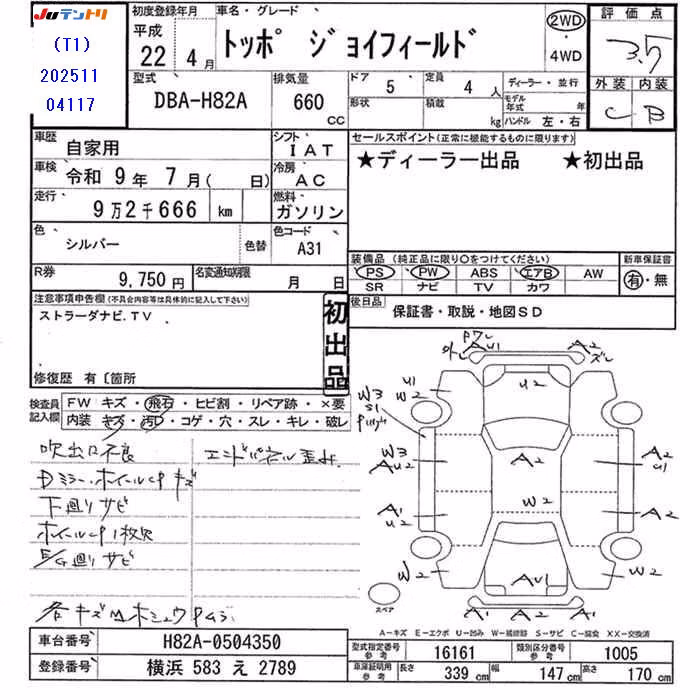 JUテントリ
(T1)
202511
04117
初度登録年月
平成
22 4月
車名・グレード
トッポ ジョイフィールド
2WD
・
4WD
評価点
3.5
外装 内装
C B
型式
DBA-H82A
排気量
660 CC
ドア 5
定員 4人
形状
積載 kg
ディーラー・並行
モデル年式 年
ハンドル 左・右
車歴
自家用
シフト
IAT
車検
令和 9年 7月( 日)
冷房
AC
走行
9万2千666 km
燃料
ガソリン
色
シルバー
色替
色コード
A31
R券
9,750円
名変通知期限
月 日
セールスポイント(正常に機能するものに限ります)
★ディーラー出品 ★初出品
装備品(純正品に限り○をつけてください)
新車保証書
PS PW ABS エアB AW
有・無
SR ナビ TV カワ
後日品
保証書・取説・地図SD
注意事項申告欄(不具合内容等は具体的に記入して下さい)
ストラーダナビ.TV
初出品
修復歴 有〔箇所
検査員記入欄
FW キズ・飛石・ヒビ割・リペア跡・×要
内装 キズ・汚レ・コゲ・穴・スレ・キレ・破レ
吹出口不良
エンドパネル歪み
Dミラー・ホイールCPキズ
下廻りサビ
ホイールCP1枚欠
E/G廻りサビ
AU1
A2
U1
W2
U2
W3
S1
W3
AU2
A2
A2
U1
A1
U2
W2
A2
W2
AU1
W2
A2
A1
A1
スペア
A－キズ E－エクボ U－凹み W－補修跡 S－サビ C－腐食 XX－交換済
車台番号
H82A-0504350
登録番号
横浜 583 え 2789
型式指定番号 参考
16161
類別区分番号 参考
1005
車庫証明用 参考
長さ 339 cm
幅 147 cm
高さ 170 cm